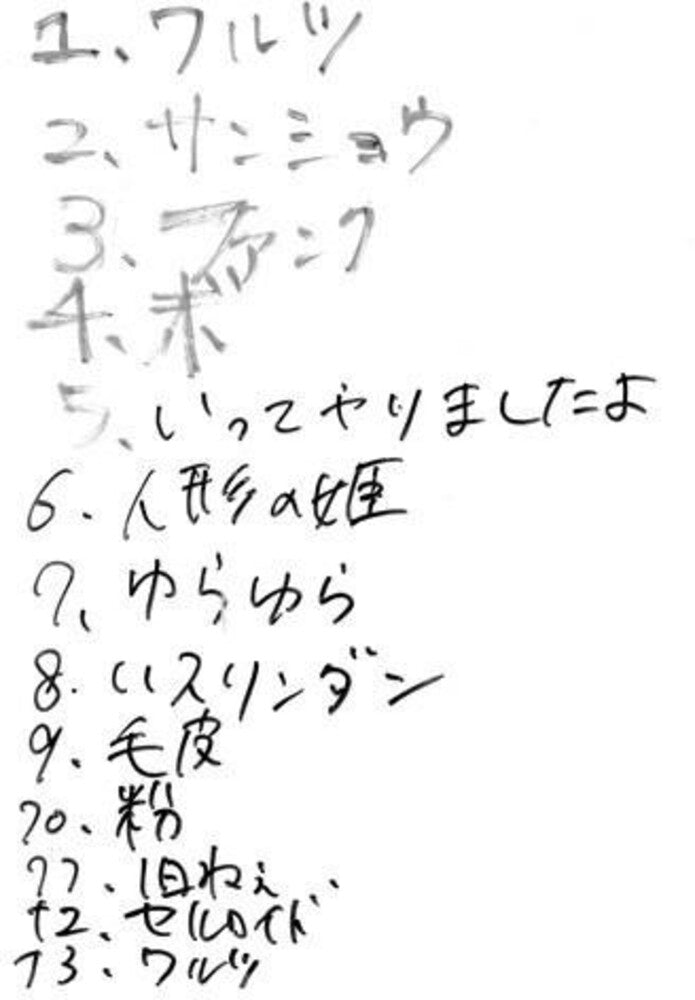 1、ワルツ
2、サンショウ
3、ファンク
4、ボ
5、いってやりましたよ
6.人形の姫
7、ゆらゆら
8.いスリンダン
9、毛皮
10、粉
11、旧ねぇ
12、セルロイド
13、ワルツ